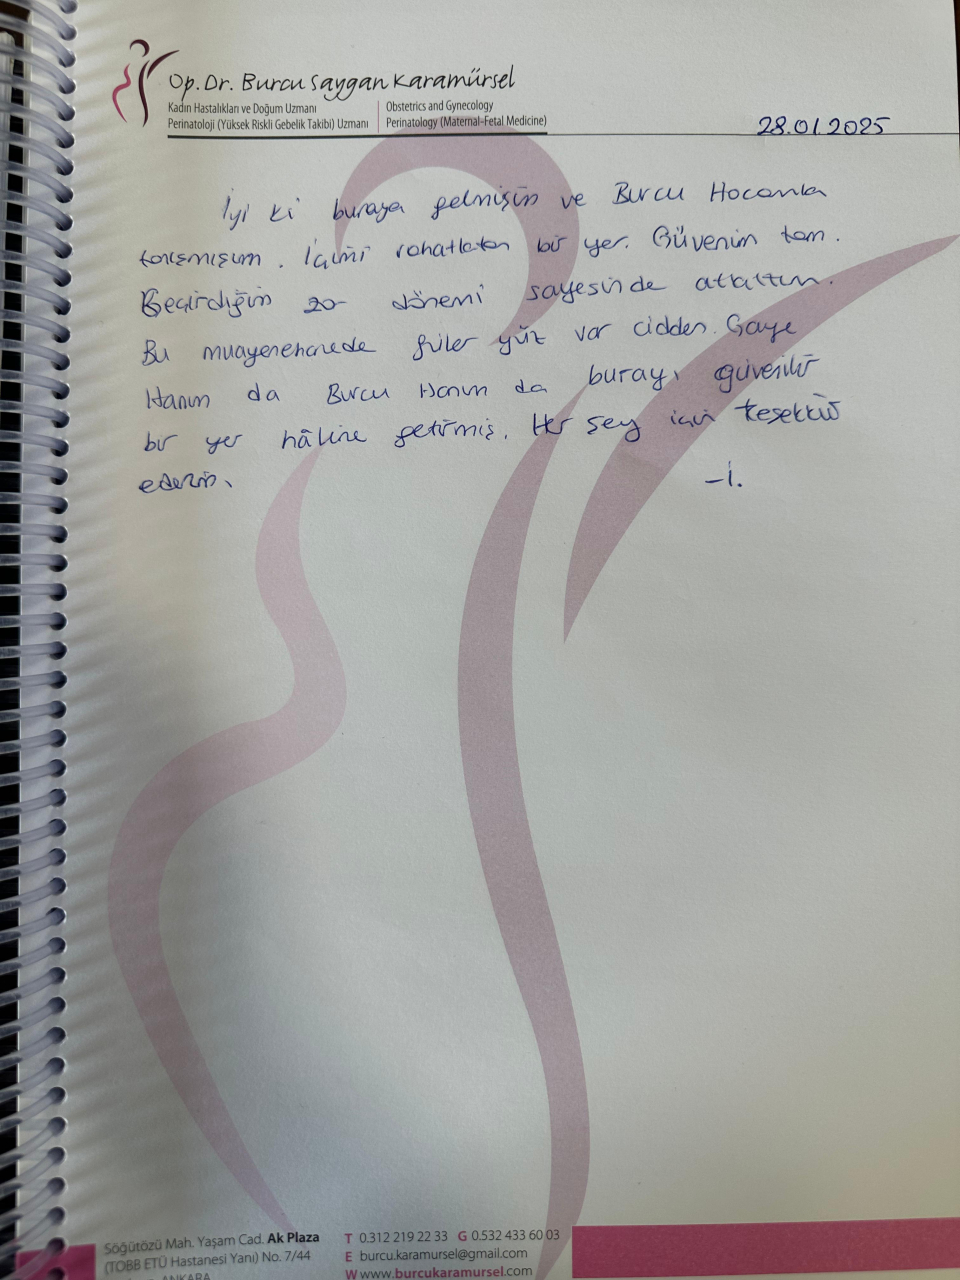 Op. Dr. Burcu Saygan Karamürsel
Kadın Hastalıkları ve Doğum Uzmanı
Perinatoloji (Yüksek Riskli Gebelik Takibi) Uzmanı
Obstetrics and Gynecology
Perinatology (Maternal-Fetal Medicine)
28.01.2025
İyi ki buraya gelmişim ve Burcu Hocamla
tanışmışım. İçimi rahatlatan bir yer. Güvenim tam.
Geçirdiğim zor dönemi sayesinde atlattım.
Bu muayenehanede güler yüz var cidden. Gaye
Hanım da Burcu Hanım da burayı güvenilir
bir yer hâline getirmiş. Her şey için teşekkür
ederim.
-İ.
Söğütözü Mah. Yaşam Cad. Ak Plaza
(TOBB ETÜ Hastanesi Yanı) No. 7/44
ANKARA
T 0.312 219 22 33 G 0.532 433 60 03
E burcu.karamursel@gmail.com
W www.burcukaramursel.com